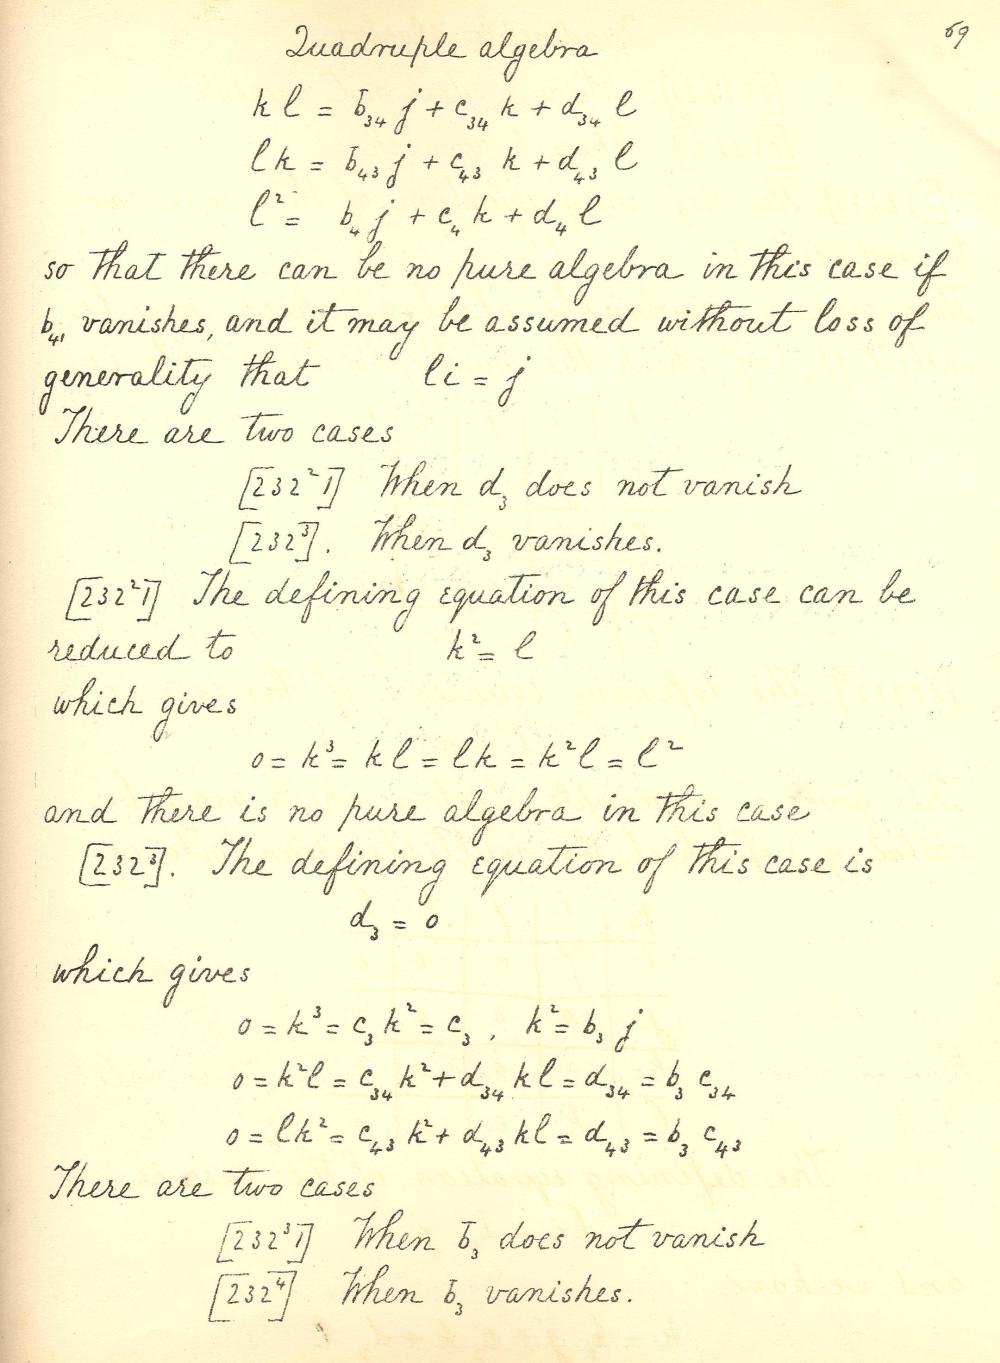 69
Quadruple algebra
kl = b₃₄ j + c₃₄ k + d₃₄ l
lk = b₄₃ j + c₄₃ k + d₄₃ l
l² = b₄ j + c₄ k + d₄ l
so that there can be no pure algebra in this case if
b₄₁ vanishes, and it may be assumed without loss of
generality that li = j
There are two cases
[232²1] When d₃ does not vanish
[232³]. When d₃ vanishes.
[232²1] The defining equation of this case can be
reduced to k² = l
which gives
0 = k³ = kl = lk = k²l = l²
and there is no pure algebra in this case
[232³]. The defining equation of this case is
d₃ = 0
which gives
0 = k³ = c₃ k² = c₃ , k² = b₃ j
0 = k²l = c₃₄ k² + d₃₄ kl = d₃₄ = b₃ c₃₄
0 = lk² = c₄₃ k² + d₄₃ kl = d₄₃ = b₃ c₄₃
There are two cases
[232³1] When b₃ does not vanish
[232⁴] When b₃ vanishes.